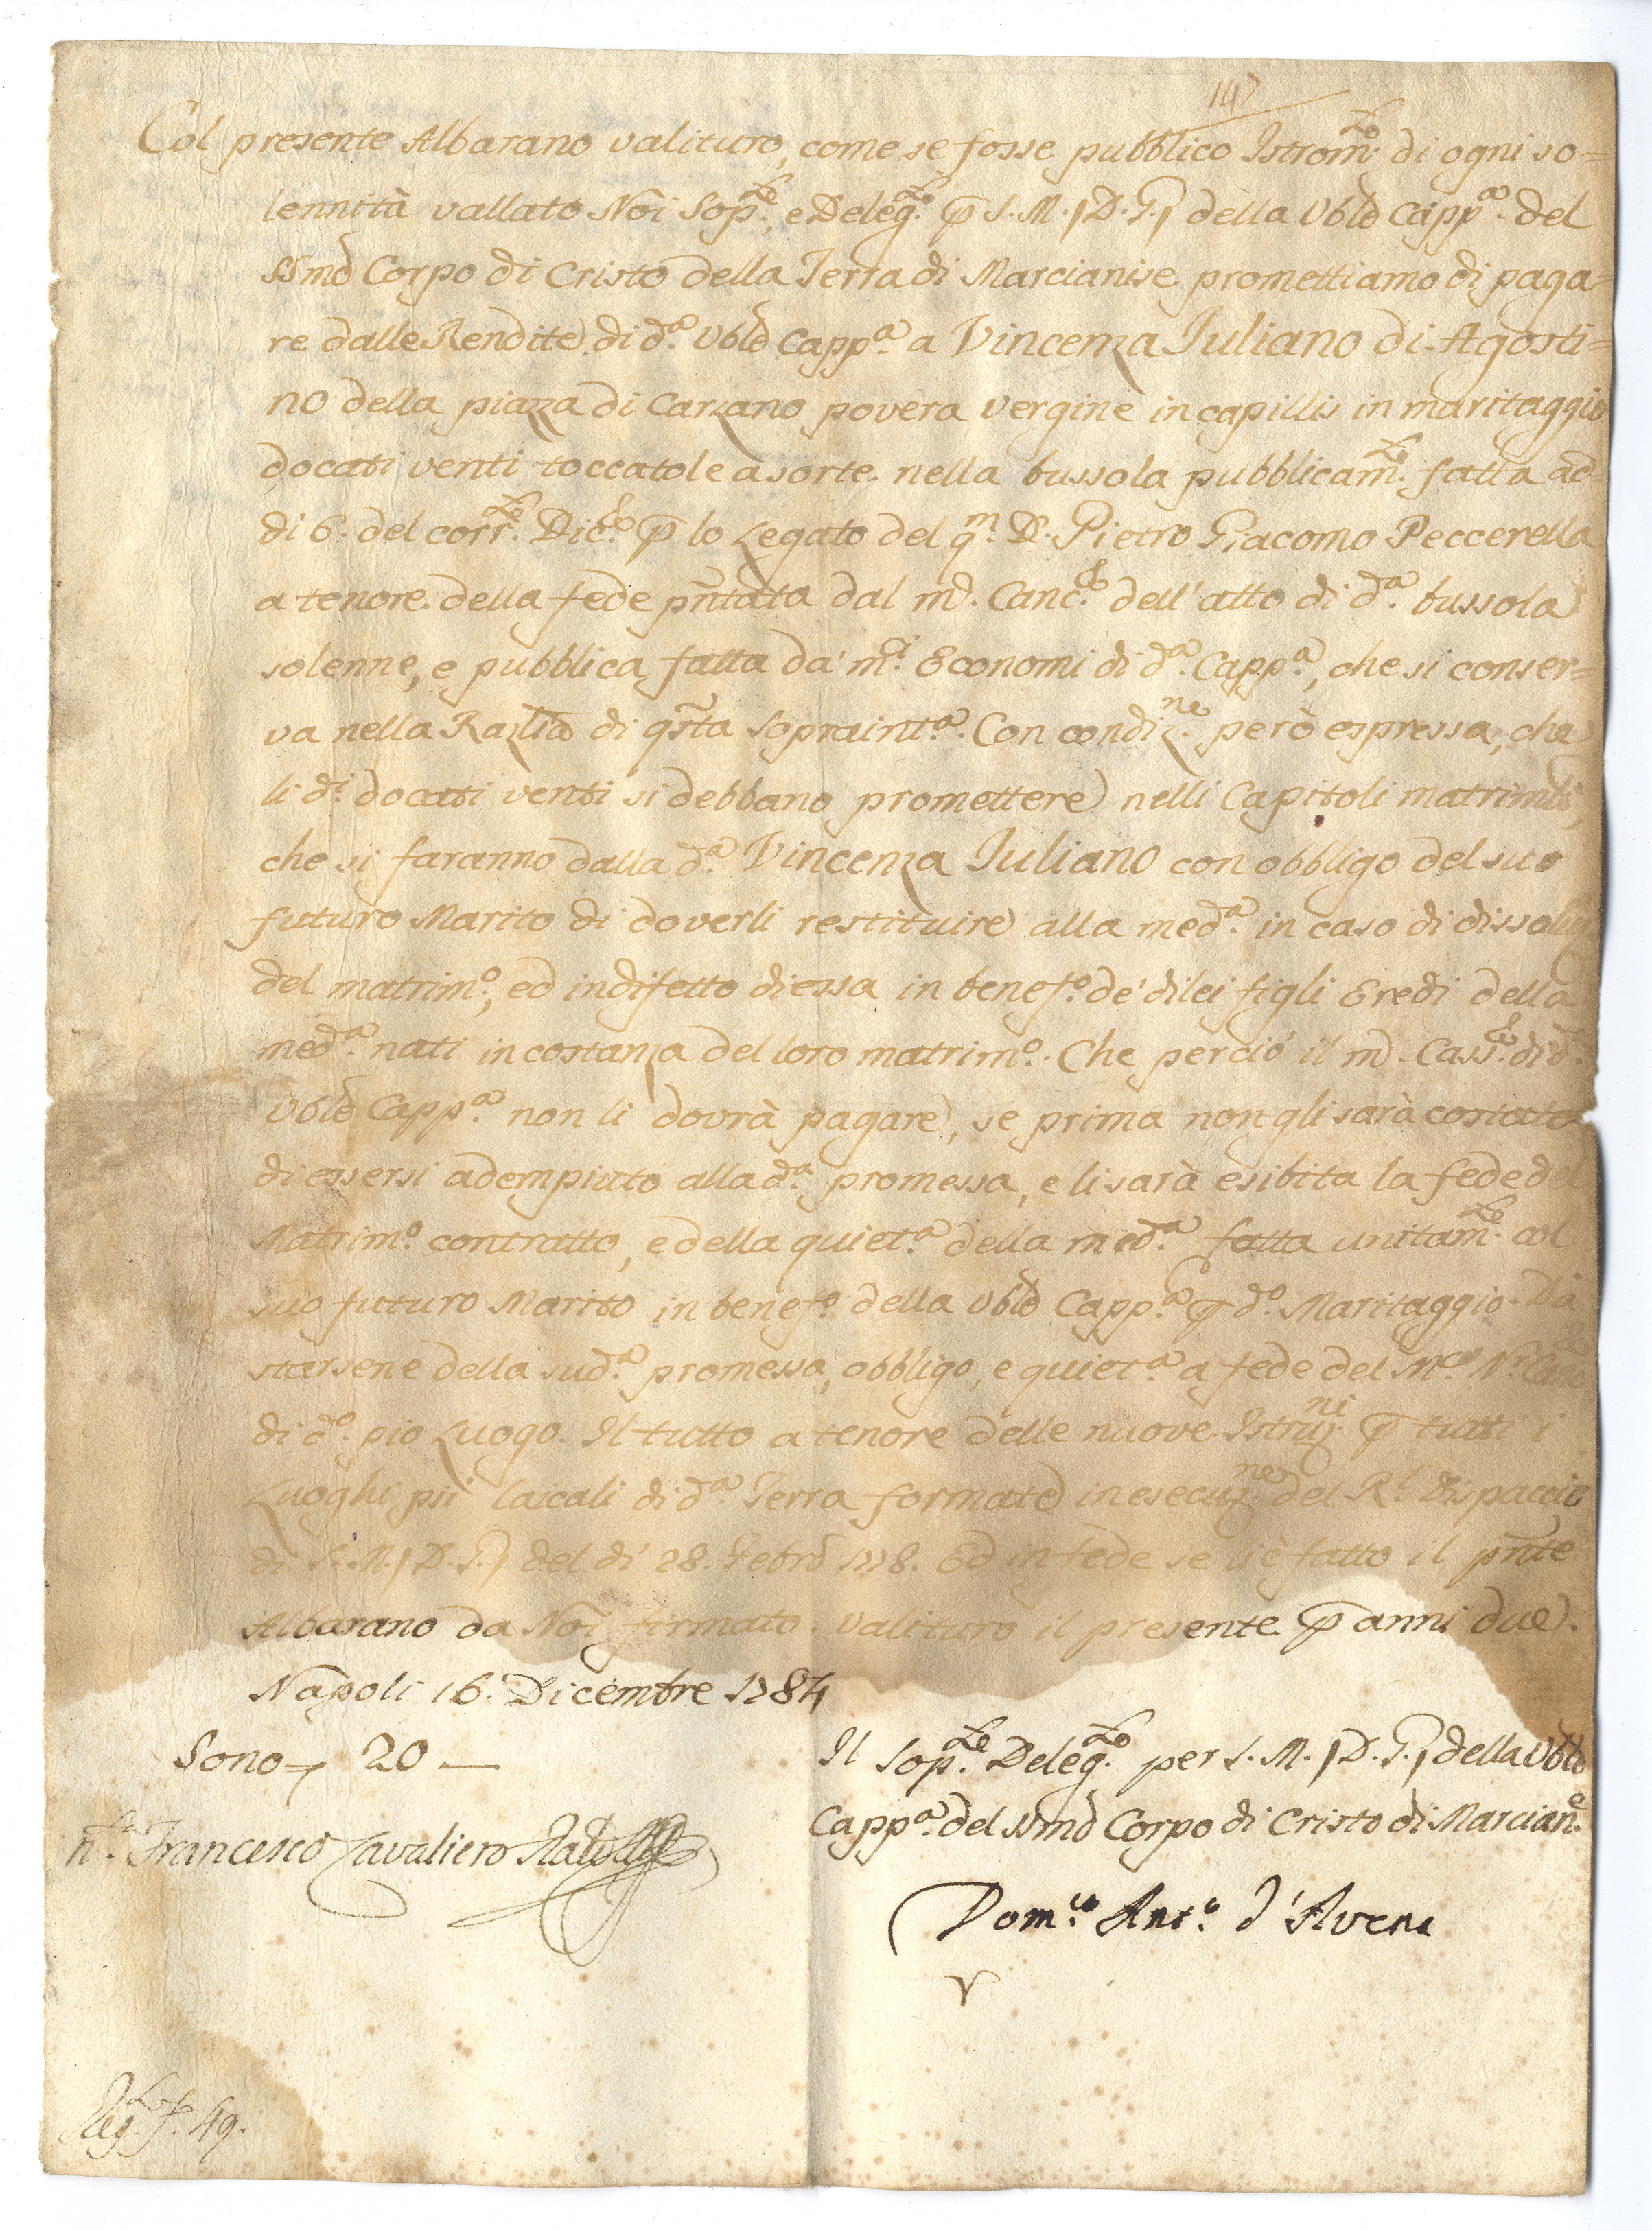 147
Col presente Albarano valituro, come se fosse pubblico Istrom.to di ogni so=
lennità vallato Noi Sop.te, e Deleg.to p S. M. (D. G.) della Ven.le Capp.a del
SSmo Corpo di Cristo della Terra di Marcianise promettiamo di paga=
re dalle Rendite di d.a Ven.le Capp.a a Vincenza Iuliano di Agosti=
no della piazza di Carzano povera vergine in capillis in maritaggio
docati venti toccatole a sorte nella bussola pubblicam.te fatta ad=
di 6. del corr.te Dic.e p lo Legato del q.m D. Pietro Giacomo Peccerella
a tenore della fede pntata dal m.o Canc.re dell'atto di d.a bussola
solenne, e pubblica fatta da' m.i Economi di d.a Capp.a, che si conser=
va nella Raz.le di qsta Sopraint.a. Con condiz.ne però espressa, che
li d.i docati venti si debbano promettere nelli Capitoli matrim.li,
che si faranno dalla d.a Vincenza Iuliano con obbligo del suo
futuro Marito di doverli restituire alla med.a in caso di dissoluz.
del matrim.o, ed in difetto di essa in benef.o de' di lei figli Eredi della
med.a nati in costanza del loro matrim.o. Che perciò il m.o Cass.re di d.a
Ven.le Capp.a non li dovrà pagare, se prima non gli sarà costato
di essersi adempiuto alla d.a promessa, e li sarà esibita la fede del
Matrim.o contratto, e della quiet.a della med.a fatta unitam.te col
suo futuro Marito in benef.o della Ven.le Capp.a p d.o Maritaggio. Da
starsene della sud.a promessa, obbligo, e quiet.a a fede del M.co N.r Canc.
di d.o pio Luogo. Il tutto a tenore delle nuove Istruz.ni p tutti i
Luoghi pii laicali di d.a Terra formate in esecuz.ne del R.l Dispaccio
di S. M. (D. G.) del dì 28. Febro 1778. Ed in fede se li è fatto il pnte
Albarano da Noi firmato. valituro il presente p anni due.
Napoli 16. Dicembre 1784
Sono 20 —
Il Sop.te Deleg.to per S. M. (D. G.) della Ven.le
Capp.a del SSmo Corpo di Cristo di Marcian.e
n.r Francesco Cavaliero
Dom.co Ant.o d'Avena
Reg.to f. 49.